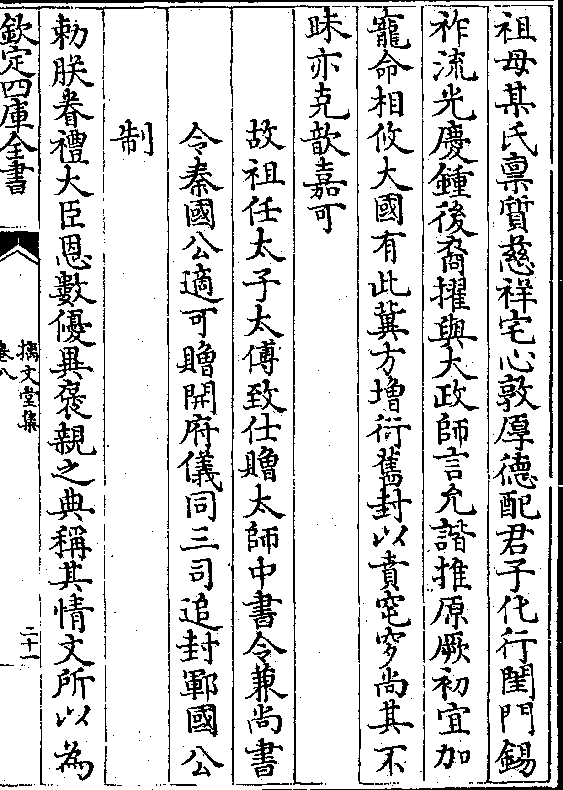 祖母某氏禀質慈祥宅心敦厚德配君子化行閨門錫
祚流光慶鍾後裔擢與大政師言允諧推原厥初宜加
寵命相攸大國有此冀方増衍舊封以賁窀穸尚其不
昧亦克歆嘉可
故祖任太子太傅致仕贈太師中書令兼尚書
令秦國公適可贈開府儀同三司追封鄆國公
制
勅朕眷禮大臣恩數優異褒親之典稱其情文所以為
欽定四庫全書
摛文堂集
卷八
二十一